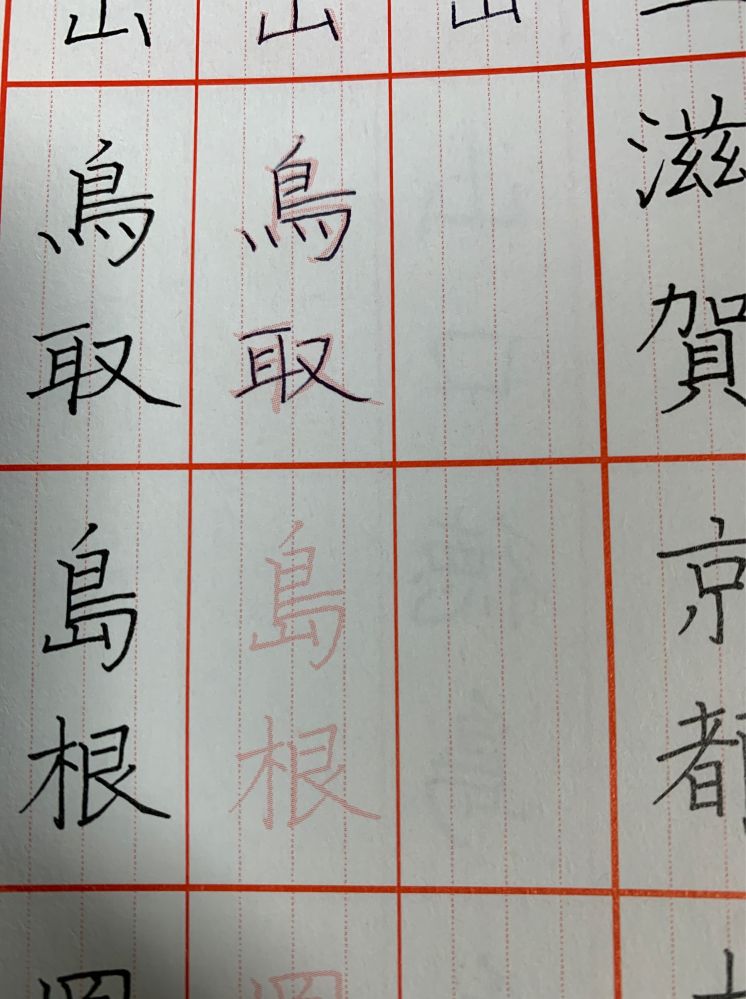 滋賀
京都
山
山
鳥取
島根
山
鳥取
島根